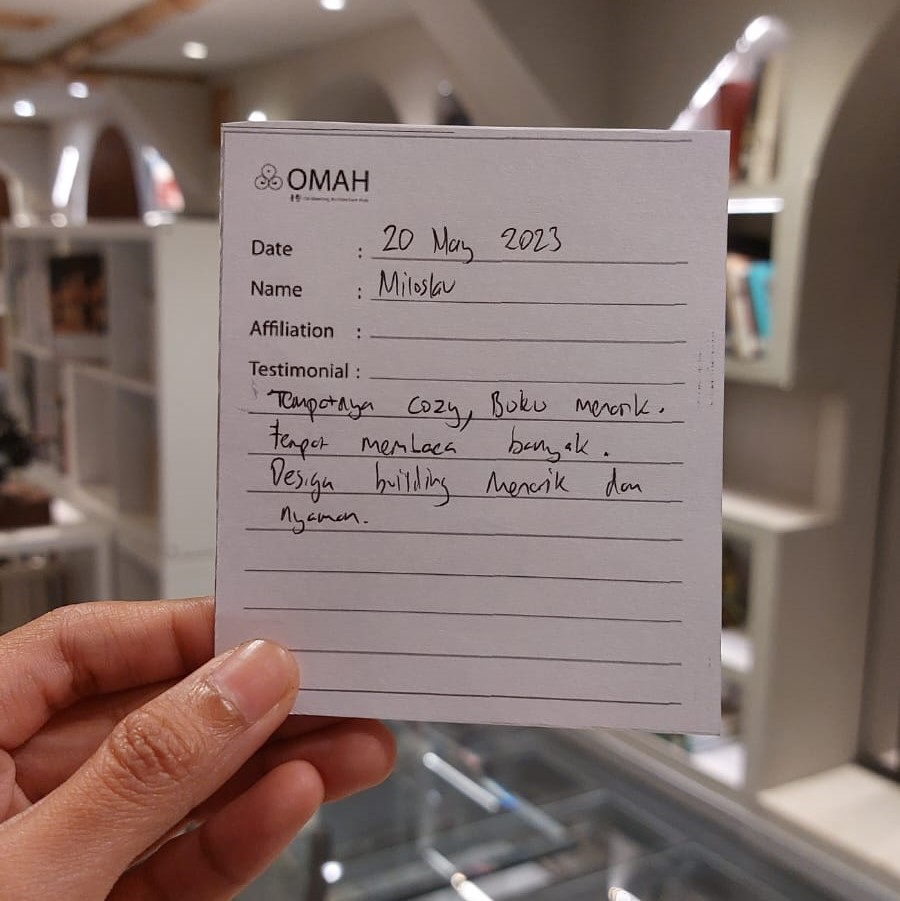 OMAH
Date : 20 May 2023
Name : Miloslav
Affiliation :
Testimonial :
Tempatnya cozy, Buku menarik.
tempat membaca banyak.
Design building Menarik dan
nyaman.